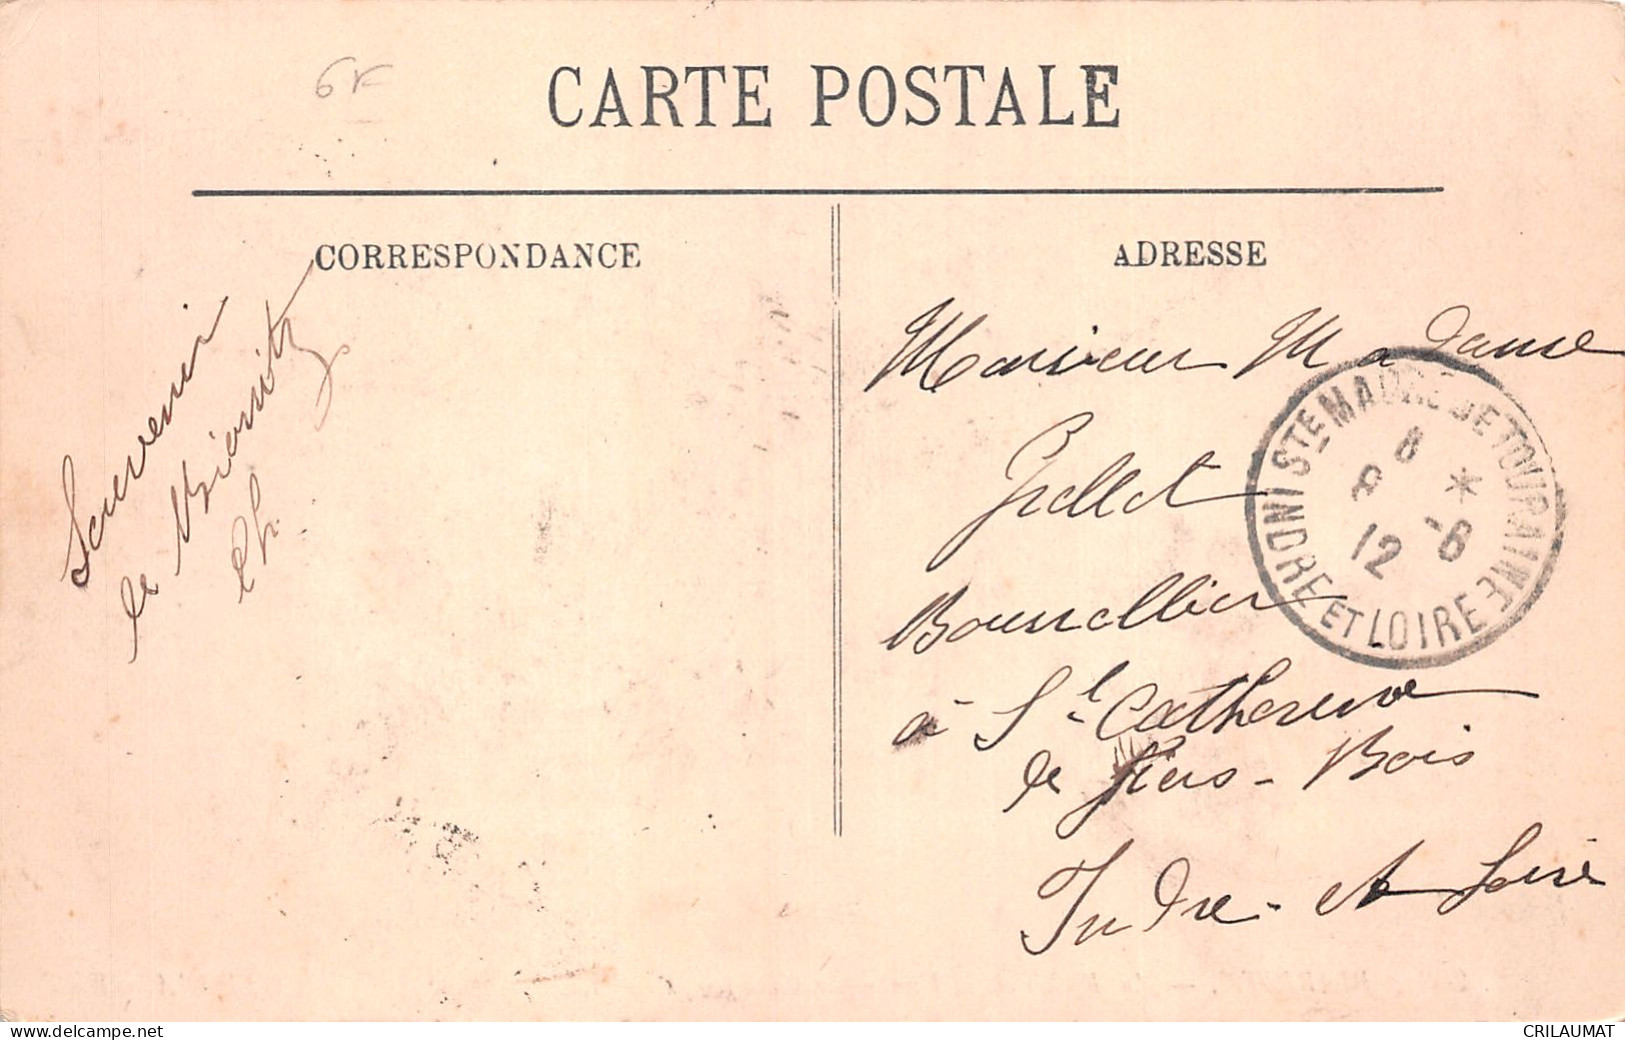 6F
CARTE POSTALE
CORRESPONDANCE
Souvenir
de
Ch.
ADRESSE
Monsieur Madame
Grellet
Bourrellier
à Ste Catherine
de Fiers-Bois
Indre-et Loire
STE MAURE DE TOURAINE
8
8 *
12 -6
INDRE ET LOIRE
www.delcampe.net
CRILAUMAT